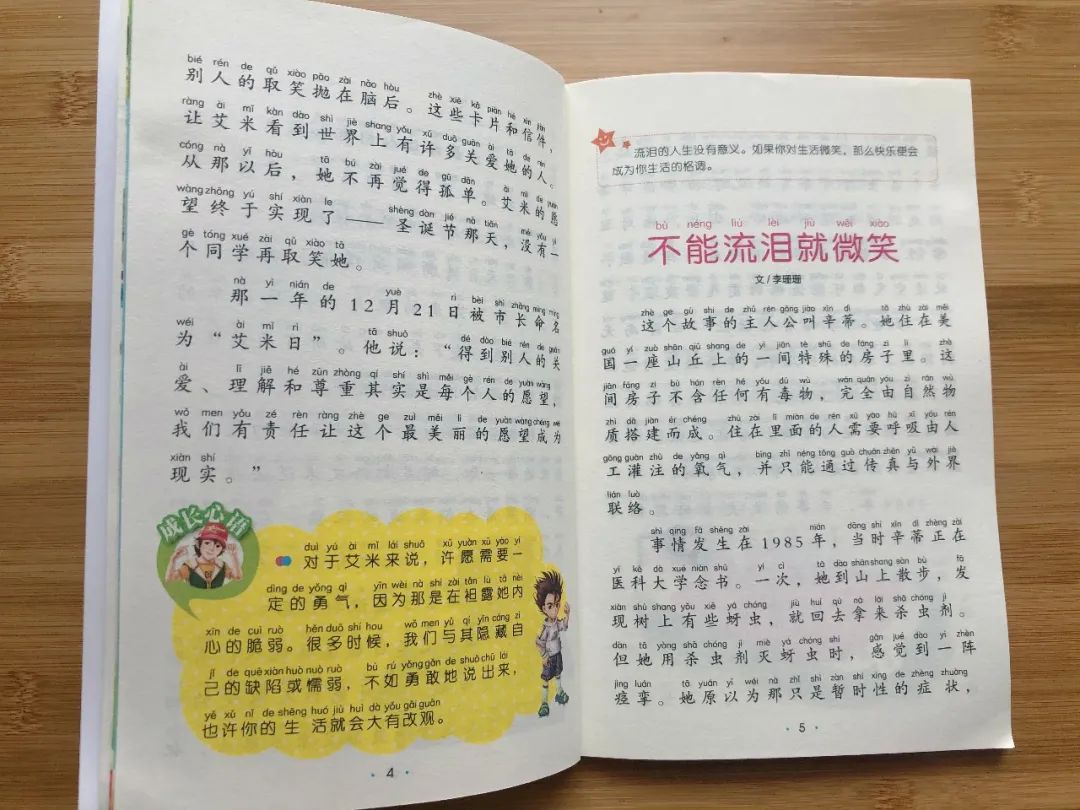 bié rén de qǔ xiào pāo zài nǎo hòu zhè xiē kǎ piàn hé xìn jiàn
别人的取笑抛在脑后。这些卡片和信件，
ràng ài mǐ kàn dào shì jiè shang yǒu xǔ duō guān ài tā de rén
让艾米看到世界上有许多关爱她的人。
cóng nà yǐ hòu tā bú zài jué de gū dān ài mǐ de yuàn
从那以后，她不再觉得孤单。艾米的愿
wàng zhōng yú shí xiàn le shèng dàn jié nà tiān méi yǒu yí
望终于实现了——圣诞节那天，没有一
gè tóng xué zài qǔ xiào tā
个同学再取笑她。
nà yì nián de yuè rì bèi shì zhǎng mìng míng
那一年的12月21日被市长命名
wéi ài mǐ rì tā shuō dé dào bié rén de guān
为“艾米日”。他说：“得到别人的关
ài lǐ jiě hé zūn zhòng qí shí shì měi gè rén de yuàn wàng
爱、理解和尊重其实是每个人的愿望，
wǒ men yǒu zé rèn ràng zhè ge zuì měi lì de yuàn wàng chéng wéi
我们有责任让这个最美丽的愿望成为
xiàn shí
现实。”
成长心语
duì yú ài mǐ lái shuō xǔ yuàn xū yào yí
对于艾米来说，许愿需要一
dìng de yǒng qì yīn wèi nà shì zài tǎn lù tā nèi
定的勇气，因为那是在袒露她内
xīn de cuì ruò hěn duō shí hou wǒ men yǔ qí yǐn cáng zì
心的脆弱。很多时候，我们与其隐藏自
jǐ de quē xiàn huò nuò ruò bù rú yǒng gǎn de shuō chū lái
己的缺陷或懦弱，不如勇敢地说出来，
yě xǔ nǐ de shēng huó jiù huì dà yǒu gǎi guān
也许你的生活就会大有改观。
4
流泪的人生没有意义。如果你对生活微笑，那么快乐便会
成为你生活的格调。
bù néng liú lèi jiù wēi xiào
不能流泪就微笑
文/李珊珊
zhè ge gù shi de zhǔ rén gōng jiào xīn dì tā zhù zài měi
这个故事的主人公叫辛蒂。她住在美
guó yí zuò shān qiū shang de yì jiān tè shū de fáng zi li zhè
国一座山丘上的一间特殊的房子里。这
jiān fáng zi bù hán rèn hé yǒu dú wù wán quán yóu zì rán wù
间房子不含任何有毒物，完全由自然物
zhì dā jiàn ér chéng zhù zài lǐ miàn de rén xū yào hū xī yóu rén
质搭建而成。住在里面的人需要呼吸由人
gōng guàn zhù de yǎng qì bìng zhǐ néng tōng guò chuán zhēn yǔ wài jiè
工灌注的氧气，并只能通过传真与外界
lián luò
联络。
shì qing fā shēng zài nián dāng shí xīn dì zhèng zài
事情发生在1985年，当时辛蒂正在
yī kē dà xué niàn shū yí cì tā dào shān shang sàn bù fā
医科大学念书。一次，她到山上散步，发
xiàn shù shang yǒu xiē yá chóng jiù huí qù ná lái shā chóng jì
现树上有些蚜虫，就回去拿来杀虫剂。
dàn tā yòng shā chóng jì miè yá chóng shí gǎn jué dào yí zhèn
但她用杀虫剂灭蚜虫时，感觉到一阵
jìng luán tā yuán yǐ wéi nà zhǐ shì zàn shí xìng de zhèng zhuàng
痉挛。她原以为那只是暂时性的症状，
5